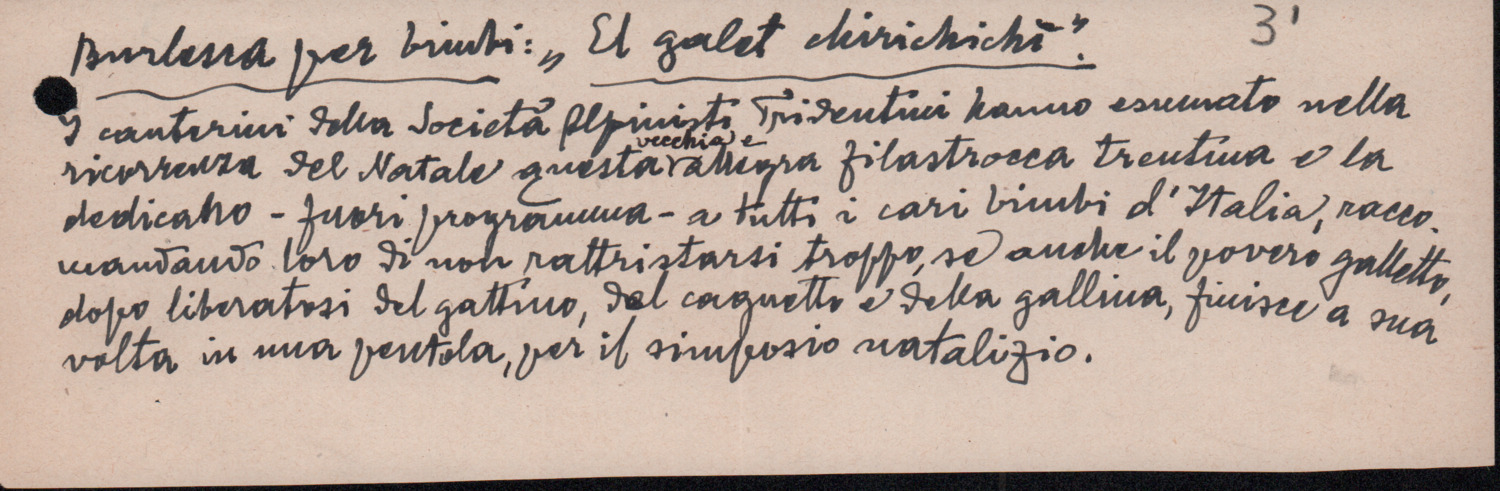 Burlesca per bimbi: „El galet chirichichì". 3'
I canterini della Società Alpinisti Tridentini hanno esumato nella
ricorrenza del Natale questa vecchia e allegra filastrocca trentina e la
dedicano - fuori programma - a tutti i cari bimbi d'Italia, racco-
mandando loro di non rattristarsi troppo, se anche il povero galletto,
dopo liberatosi del gattino, del cagnetto e della gallina, finisce a sua
volta in una pentola, per il simposio natalizio.